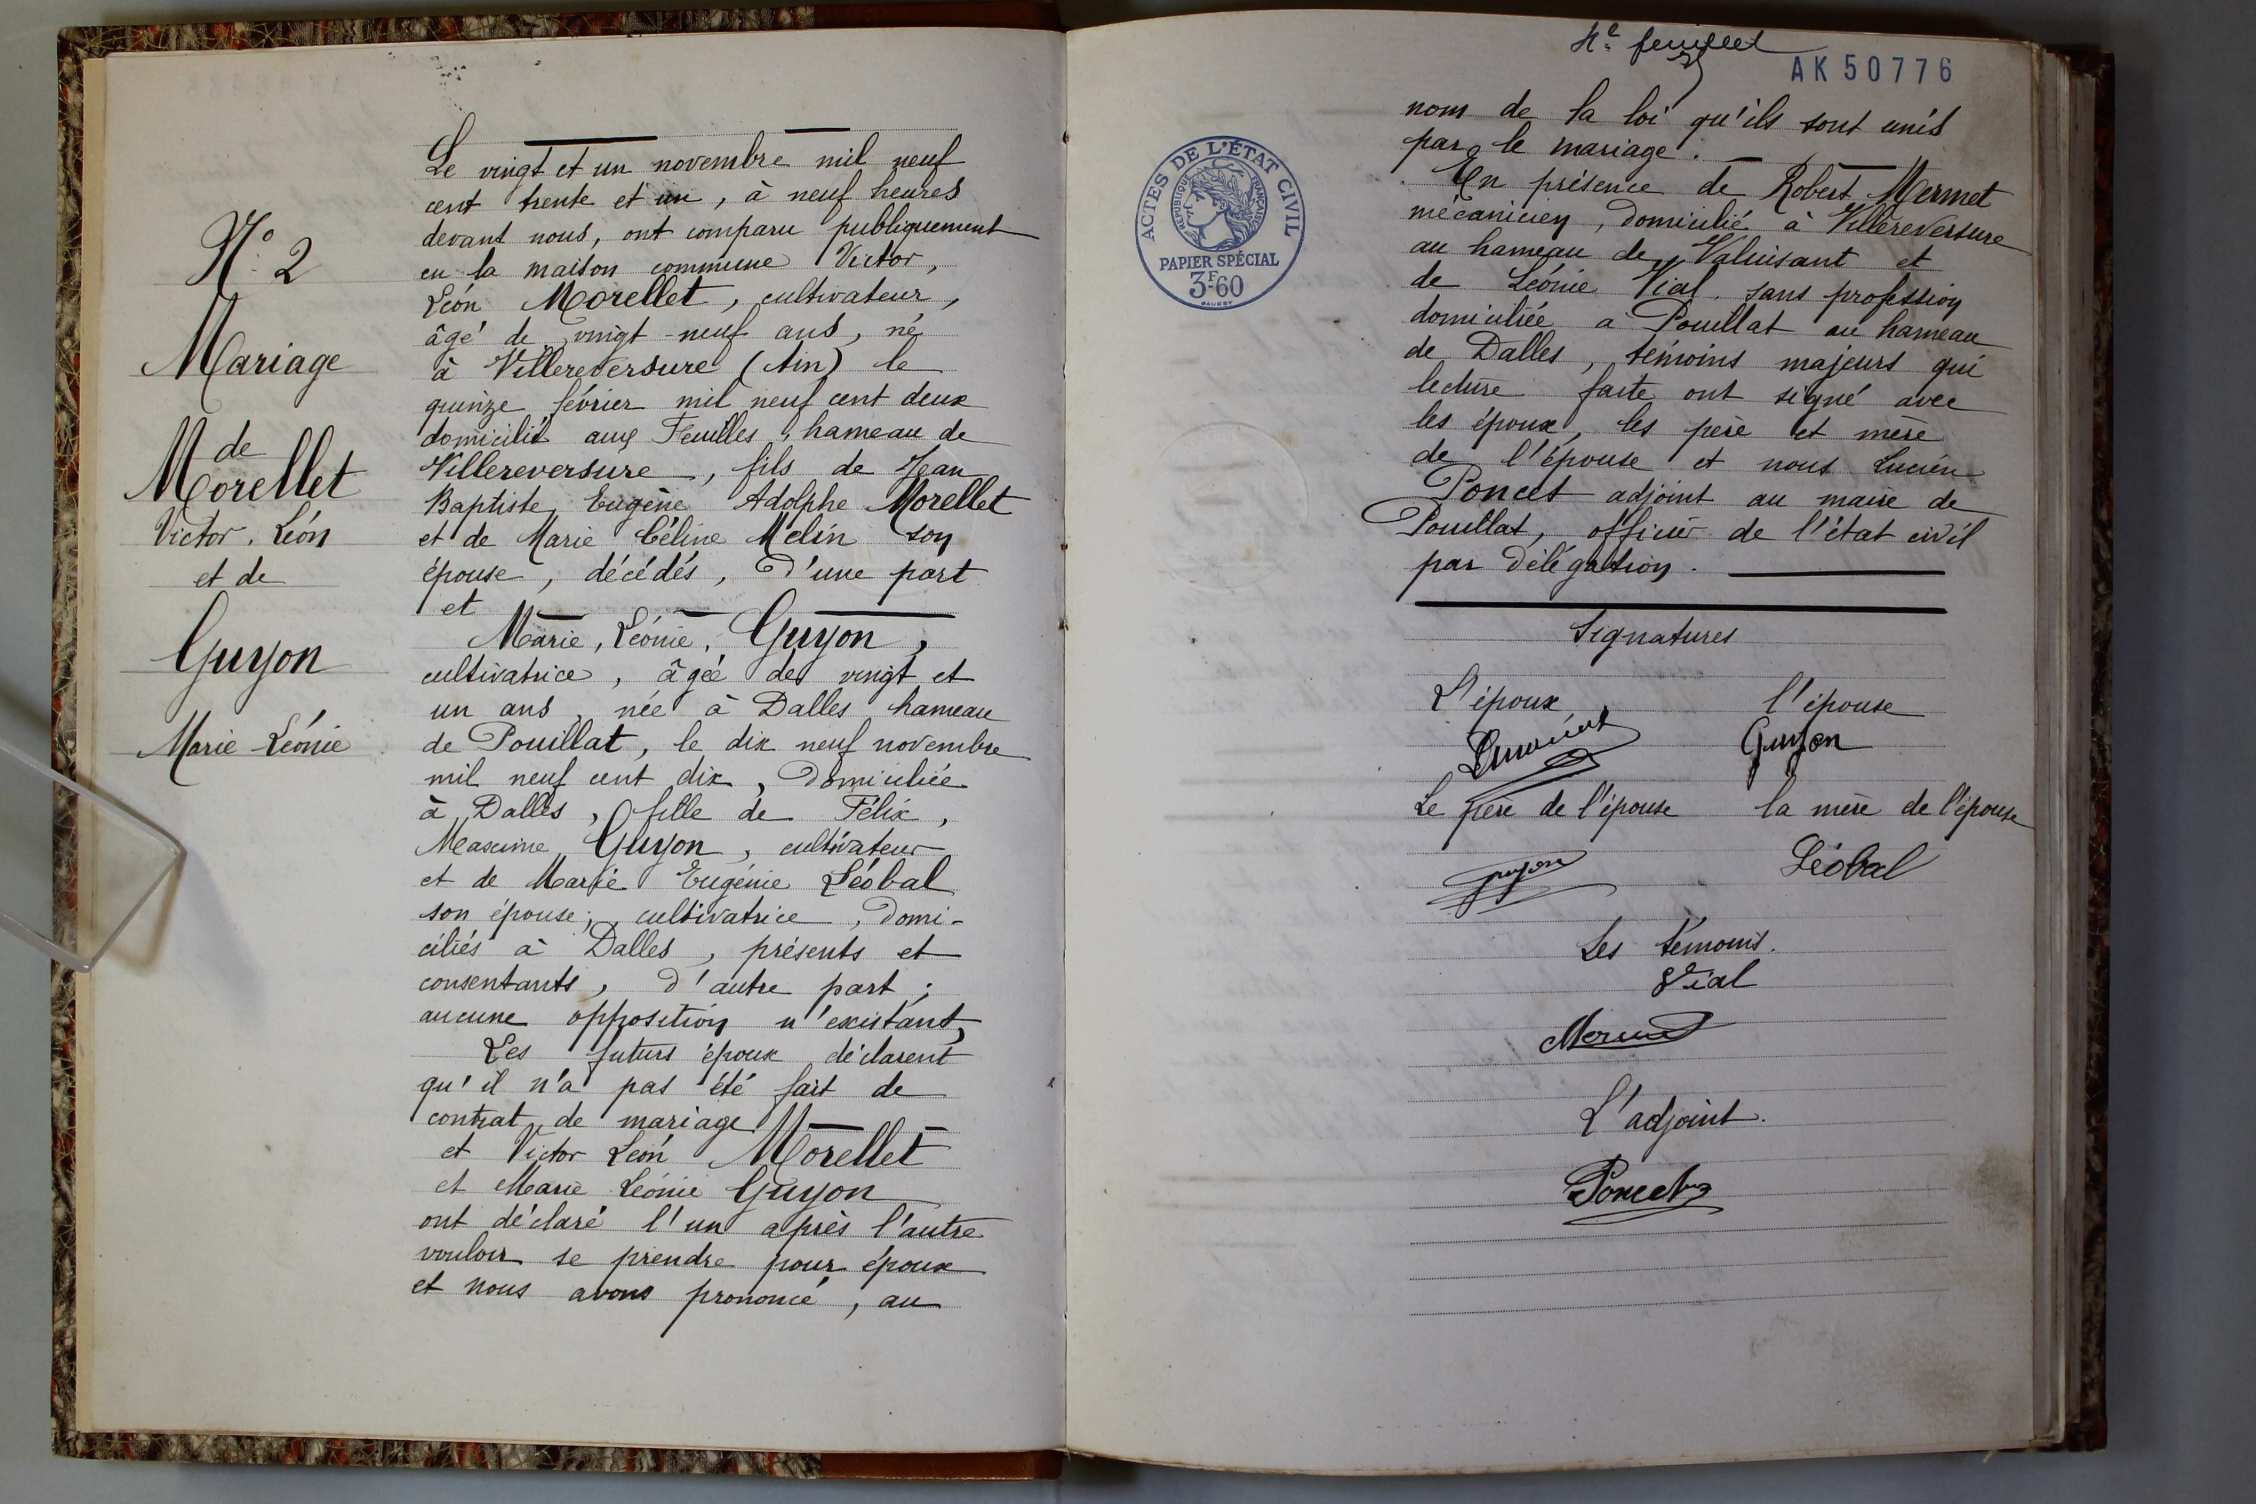 N° 2
Mariage
de
Morellet
Victor, Léon
et de
Guyon
Marie Léonie
Le vingt et un novembre mil neuf
cent trente et un, à neuf heures
devant nous, ont comparu publiquement
en la maison commune Victor,
Léon Morellet, cultivateur,
âgé de vingt-neuf ans, né
à Villereversure (Ain) le
quinze février mil neuf cent deux
domicilié aux Feuilles, hameau de
Villereversure, fils de Jean
Baptiste Eugène Adolphe Morellet
et de Marie Céline Melin son
épouse, décédés, d'une part
et
Marie, Léonie, Guyon,
cultivatrice, âgée de vingt et
un ans, née à Dalles hameau
de Pouillat, le dix neuf novembre
mil neuf cent dix, domiciliée
à Dalles, fille de Félix,
Maxime Guyon, cultivateur
et de Marie Eugénie Léobal
son épouse, cultivatrice, domi-
ciliés à Dalles, présents et
consentants, d'autre part;
aucune opposition n'existant,
Les futurs époux déclarent
qu'il n'a pas été fait de
contrat de mariage
et Victor Léon Morellet
et Marie Léonie Guyon
ont déclaré l'un après l'autre
vouloir se prendre pour époux
et nous avons prononcé, au
4e feuillet
AK 50776
ACTES DE L'ÉTAT CIVIL
RÉPUBLIQUE FRANÇAISE
PAPIER SPÉCIAL
3F.60
nom de la loi qu'ils sont unis
par le mariage.
En présence de Robert Mermet
mécanicien, domicilié à Villereversure
au hameau de Valuisant et
de Léonie Vial sans profession
domiciliée à Pouillat au hameau
de Dalles, témoins majeurs qui
lecture faite ont signé avec
les époux, les père et mère
de l'épouse et nous Lucien
Poncet adjoint au maire de
Pouillat, officier de l'état civil
par délégation.
Signatures
L'époux l'épouse
Guyon
Le père de l'épouse la mère de l'épouse
Guyon Léobal
Les témoins.
Vial
Mermet
L'adjoint.
Poncet